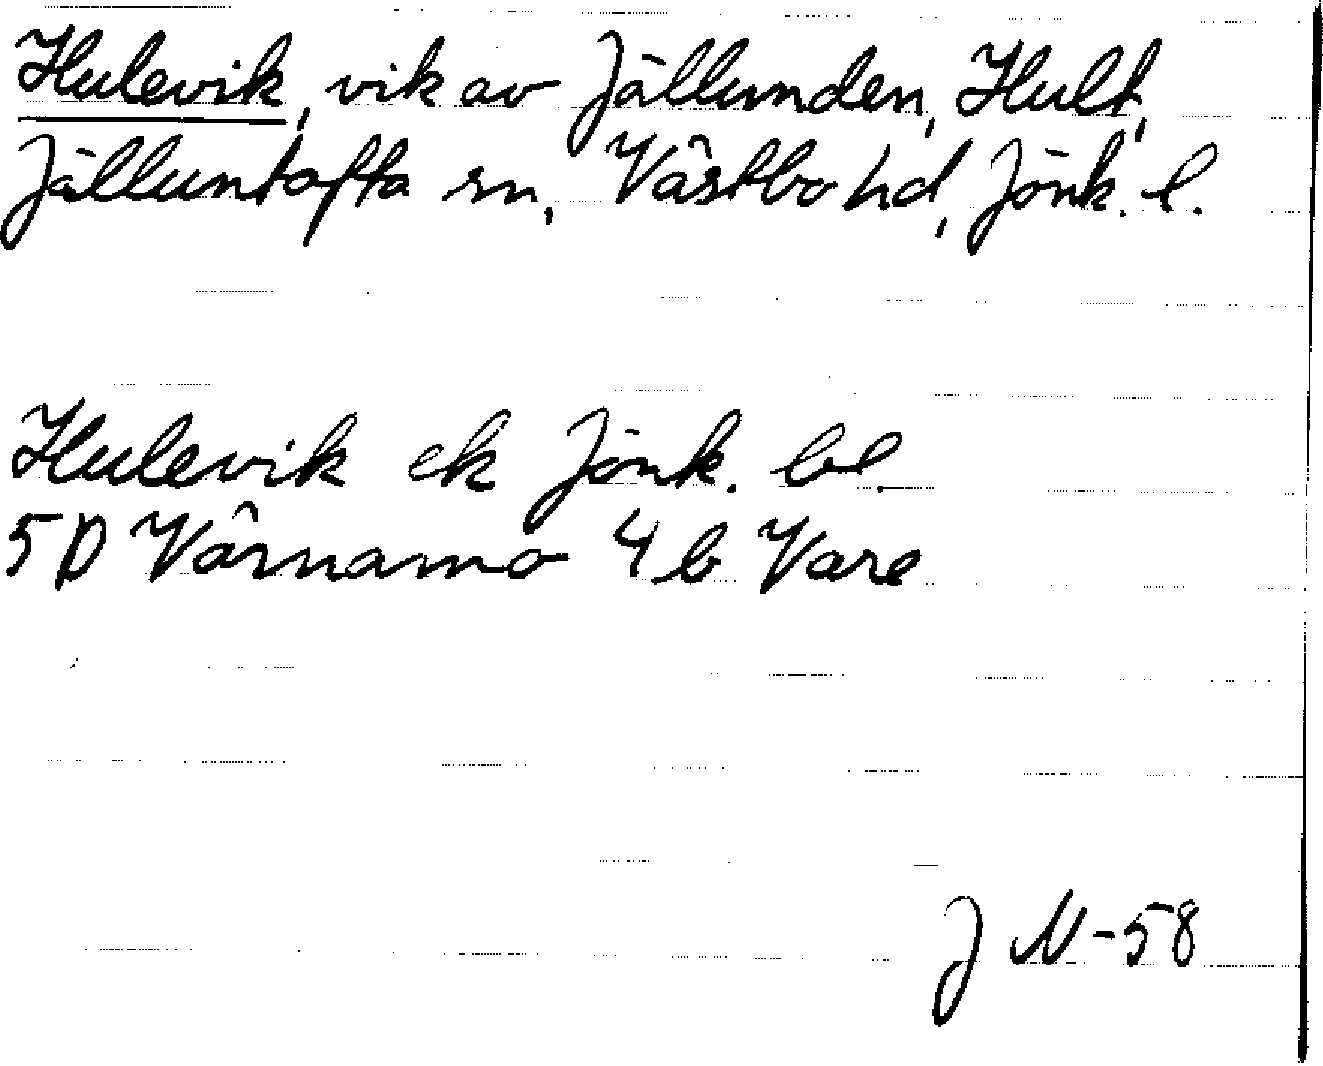 Hulevik, vik av Jällunden, Hult,
Jälluntofta sn, Västbo hd, Jönk. l.
Hulevik ek Jönk. bl.
5D Värnamo 4b Vare
J N-58